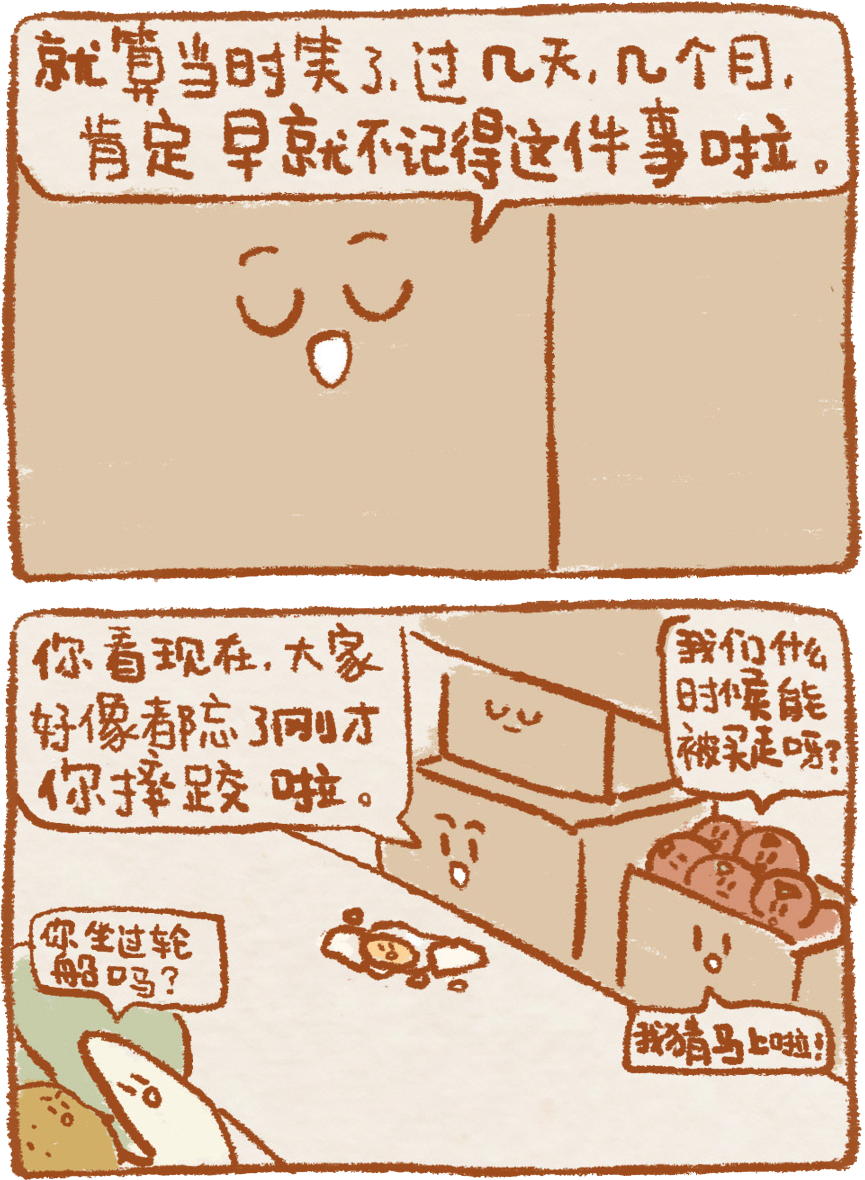 就算当时笑了,过几天,几个月,
肯定早就不记得这件事啦。
你看现在,大家
好像都忘了刚才
你摔跤啦。
我们什么
时候能
被买走呀?
你坐过轮
船吗?
我猜马上啦!